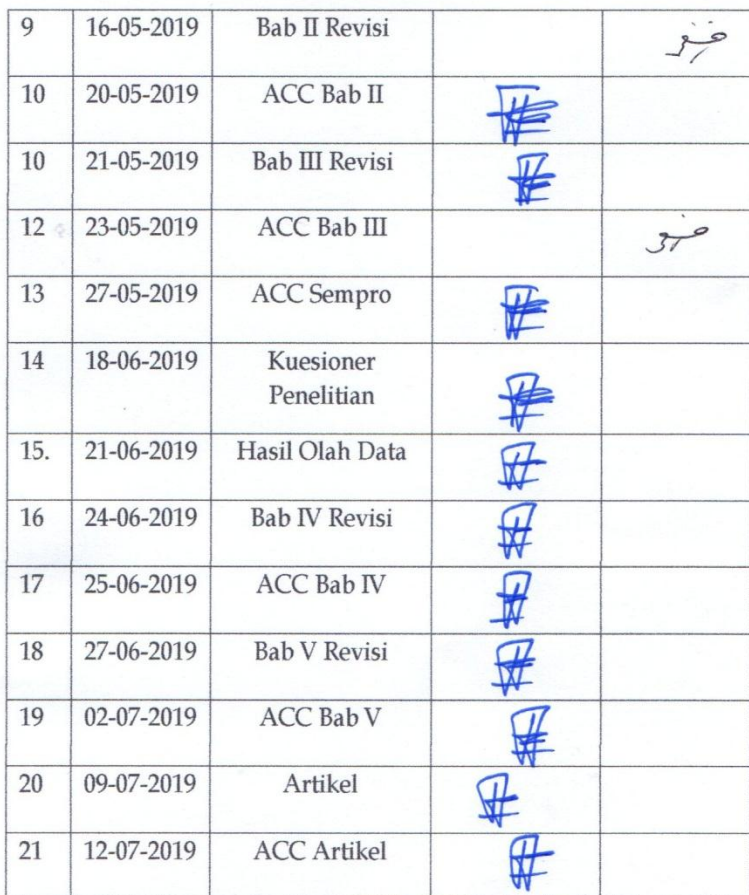 9 16-05-2019 Bab II Revisi
10 20-05-2019 ACC Bab II
10 21-05-2019 Bab III Revisi
12 23-05-2019 ACC Bab III
13 27-05-2019 ACC Sempro
14 18-06-2019 Kuesioner
Penelitian
15. 21-06-2019 Hasil Olah Data
16 24-06-2019 Bab IV Revisi
17 25-06-2019 ACC Bab IV
18 27-06-2019 Bab V Revisi
19 02-07-2019 ACC Bab V
20 09-07-2019 Artikel
21 12-07-2019 ACC Artikel